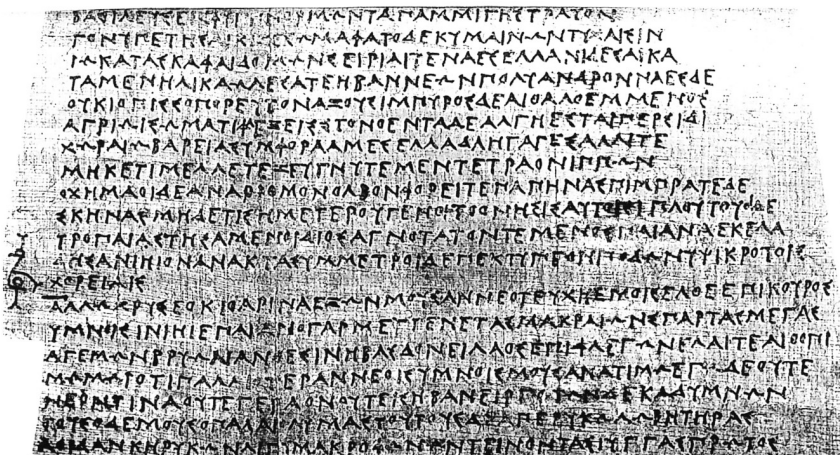 ΒΑΣΙΛΕΥΣΕΙΣΦΥΓΗΝΟΡΜΩΝΤΑΠΑΜΜΙΓΗΣΤΡΑΤΟΝ
ΓΟΝΥΠΕΤΗΣΑΙΚΙΖΕΣΩΜΑΦΑΤΟΔΕΚΥΜΑΙΝΩΝΤΥΧΑΙΣΙΝ
ΙΩΚΑΤΑΣΚΑΦΑΙΔΟΜΩΝΣΕΙΡΙΑΙΤΕΝΑΕΣΕΛΛΑΝΙΔΕΣΑΙΚΑ
ΤΑΜΕΝΗΛΙΚΑΛΛΕΣΑΤΕΗΒΑΝΝΕΩΝΠΟΛΥΑΝΔΡΟΝΝΑΕΣΔΕ
ΟΥΚΙΟΠΙΣΣΟΠΟΡΕΥΤΟΝΑΞΟΥΣΙΜΠΥΡΟΣΔΕΑΙΘΑΛΟΕΜΜΕΝΟΣ
ΑΓΡΙΩΙΣΩΜΑΤΙΦΛΕΞΕΙΣΣΤΟΝΟΕΝΤΑΔΕΑΛΓΗΕΣΤΑΙΠΕΡΣΙΔΙ
ΧΩΡΑΙΩΒΑΡΕΙΑΣΥΜΦΟΡΑΑΜΕΣΕΛΛΑΔΑΗΓΑΓΕΣΑΛΛΙΤΕ
ΜΗΚΕΤΙΜΕΛΛΕΤΕΖΕΥΓΝΥΤΕΜΕΝΤΕΤΡΑΟΝΙΠΠΩΝ
ΟΧΗΜΑΟΙΔΕΑΝΑΡΙΘΜΟΝΟΛΒΟΝΦΟΡΕΙΤΕΝΑΠΗΝΑΣΠΙΜΠΡΑΤΕΔΕ
ΣΚΗΝΑΣΜΗΔΕΤΙΣΗΜΕΤΕΡΟΥΓΕΝΟΙΤΟΟΝΗΣΙΣΑΥΤΟΙΣΙΠΛΟΥΤΟΥΟΙΔΕ
ΤΡΟΠΑΙΑΣΤΗΣΑΜΕΝΟΙΔΙΟΣΑΓΝΟΤΑΤΟΝΤΕΜΕΝΟΣΠΑΙΑΝΑΕΚΕΛΑ
ΔΗΣΑΝΙΗΙΟΝΑΝΑΚΤΑΣΥΜΜΕΤΡΟΙΔΕΠΕΚΤΥΠΕΟΝΠΟΔΩΝΥΨΙΚΡΟΤΟΙΣ
ΧΟΡΕΙΑΙΣ
ΑΛΛΩΧΡΥΣΕΟΚΙΘΑΡΙΝΑΕΞΩΝΜΟΥΣΑΝΝΕΟΤΕΥΧΗΕΜΟΙΣΕΛΘΕΕΠΙΚΟΥΡΟΣ
ΥΜΝΟΙΣΙΝΙΗΙΕΠΑΙΑΝΟΓΑΡΜΕΥΓΕΝΕΤΑΣΜΑΚΡΑΙΩΝΣΠΑΡΤΑΣΜΕΓΑΣ
ΑΓΕΜΩΝΒΡΥΩΝΑΝΘΕΣΙΝΗΒΑΣΔΟΝΕΙΛΑΟΣΕΠΙΦΛΕΓΩΝΕΛΑΙΤΕΑΙΘΟΠΙ
ΜΩΜΩΙΟΤΙΠΑΛΑΙΟΤΕΡΑΝΝΕΟΙΣΥΜΝΟΙΣΜΟΥΣΑΝΑΤΙΜΩΕΓΩΔΕΟΥΤΕ
ΝΕΟΝΤΙΝΑΟΥΤΕΓΕΡΑΟΝΟΥΤΕΙΣΗΒΑΝΕΙΡΓΩΤΩΝΔΕΚΑΔΥΜΝΩΝ
ΤΟΥΣΔΕΜΟΥΣΟΠΑΛΑΙΟΛΥΜΑΣΤΟΥΤΟΥΣΔΑΠΕΡΥΚΩΛΩΒΗΤΗΡΑΣ
ΑΟΙΔΑΝΚΗΡΥΚΩΝΛΙΓΥΜΑΚΡΟΦΩΝΩΝΤΕΙΝΟΝΤΑΣΙΥΓΓΑΣΠΡΩΤΟΣ